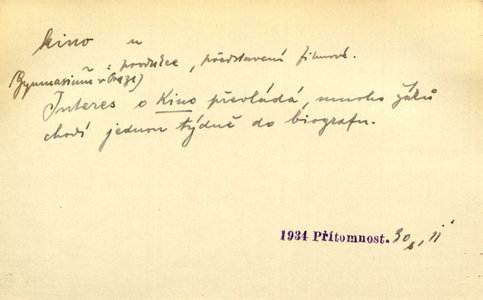 kino n
: produkce, představení filmové.
(Gymnasium v Praze)
Interes o Kino převládá, mnoho žáků
chodí jednou týdně do biografu.
1934 Přítomnost. 30, 11